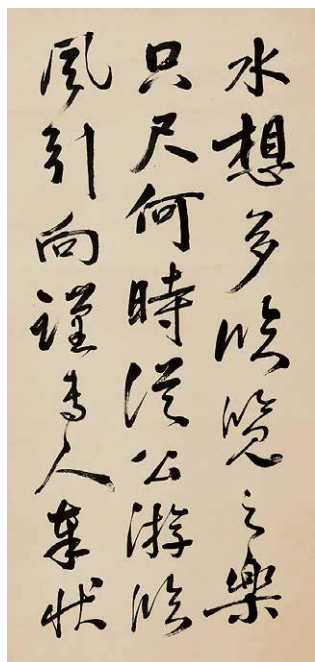 水想多临览之樂
只尺何時從公游临
風引向謹专人奉状